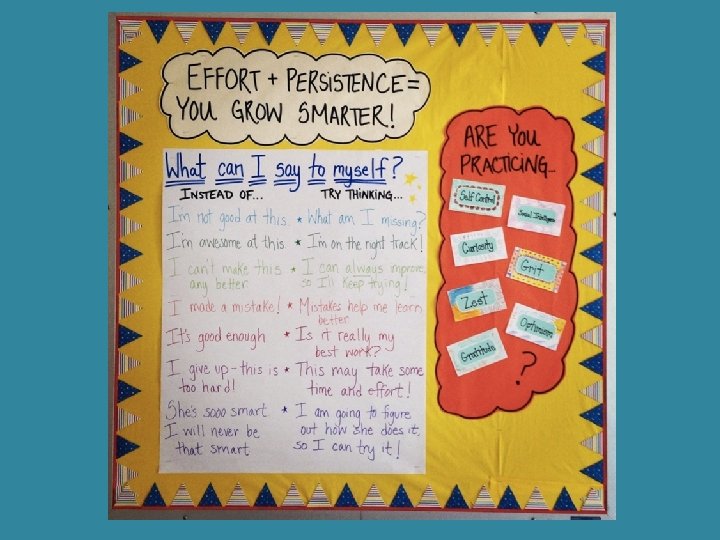 EFFORT + PERSISTENCE =
YOU GROW SMARTER!
What can I say to myself?
INSTEAD OF... TRY THINKING...
I'm not good at this. * What am I missing?
I'm awesome at this * I'm on the right track!
I can't make this * I can always improve,
any better so I'll keep trying!
I made a mistake! * Mistakes help me learn
better
It's good enough * Is it really my
best work?
I give up - this is * This may take some
too hard! time and effort!
She's sooo smart. * I am going to figure
I will never be out how she does it,
that smart so I can try it!
ARE YOU
PRACTICING...
Self Control
Social Intelligence
Curiosity
Grit
Zest
Optimism
Gratitude
?